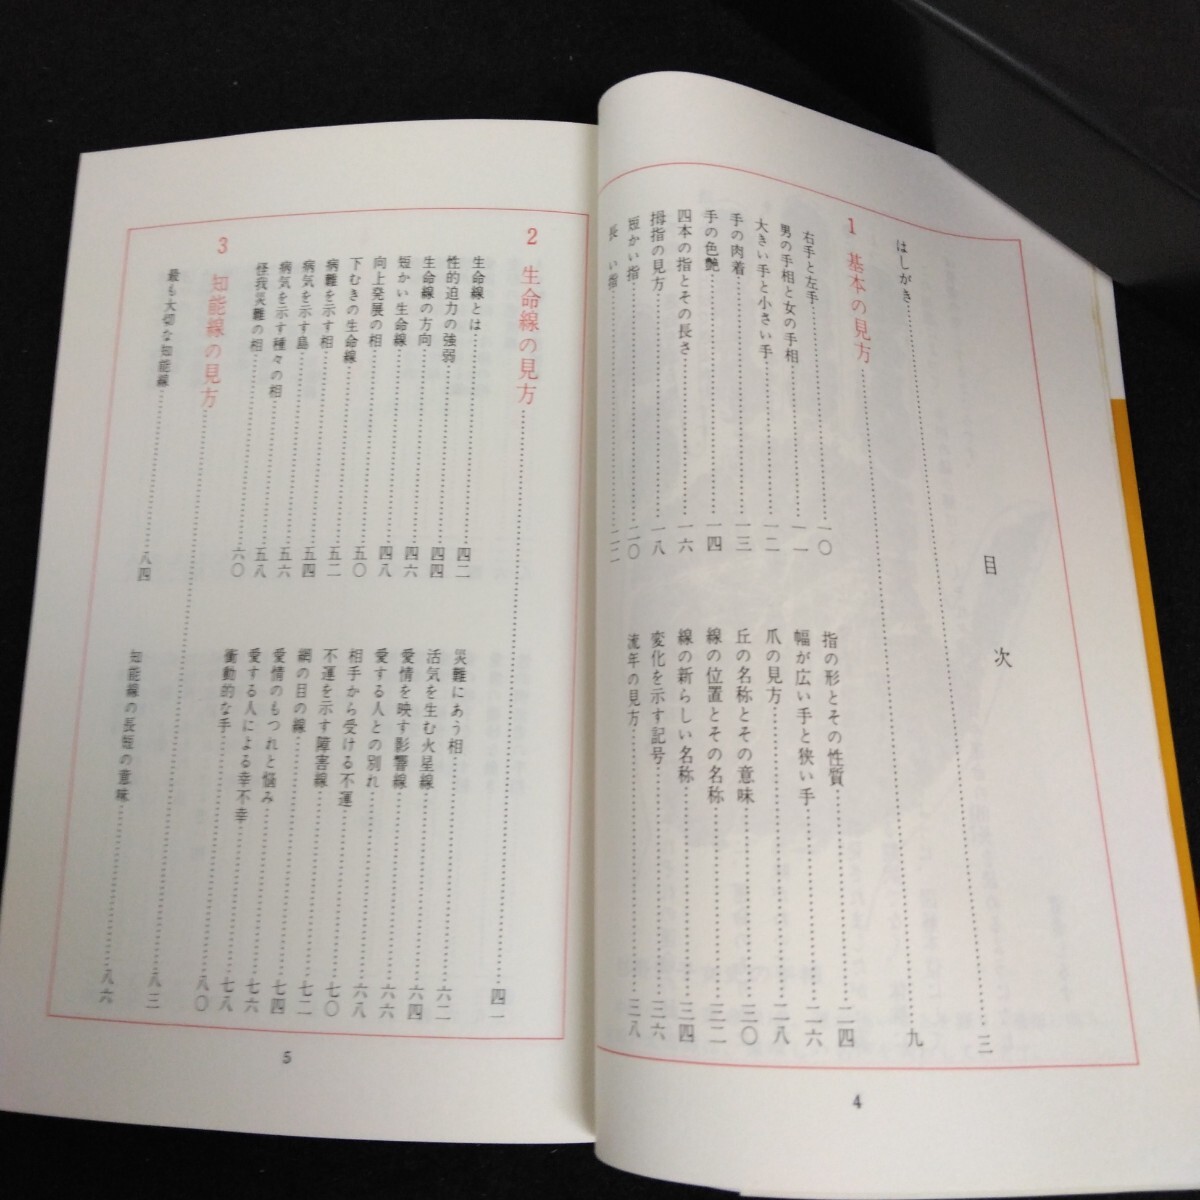 目次
はしがき……三
1 基本の見方……九
右手と左手……一〇
男の手相と女の手相……一一
大きい手と小さい手……一二
手の肉着……一三
手の色艶……一四
四本の指とその長さ……一六
拇指の見方……一八
短かい指……二〇
長い指……二二
指の形とその性質……二四
幅が広い手と狭い手……二六
爪の見方……二八
丘の名称とその意味……三〇
線の位置とその名称……三二
線の新らしい名称……三四
変化を示す記号……三六
流年の見方……三八
4
2 生命線の見方……四一
生命線とは……四二
性的迫力の強弱……四四
生命線の方向……四六
短かい生命線……四八
向上発展の相……五〇
下むきの生命線……五二
病難を示す相……五四
病気を示す島……五六
病気を示す種々の相……五八
怪我災難の相……六〇
災難にあう相……六二
活気を生む火星線……六四
愛情を映す影響線……六六
愛する人との別れ……六八
相手から受ける不運……七〇
不運を示す障害線……七二
網の目の線……七四
愛情のもつれと悩み……七六
愛する人による幸不幸……七八
衝動的な手……八〇
3 知能線の見方……八三
最も大切な知能線……八四
知能線の長短の意味……八六
5